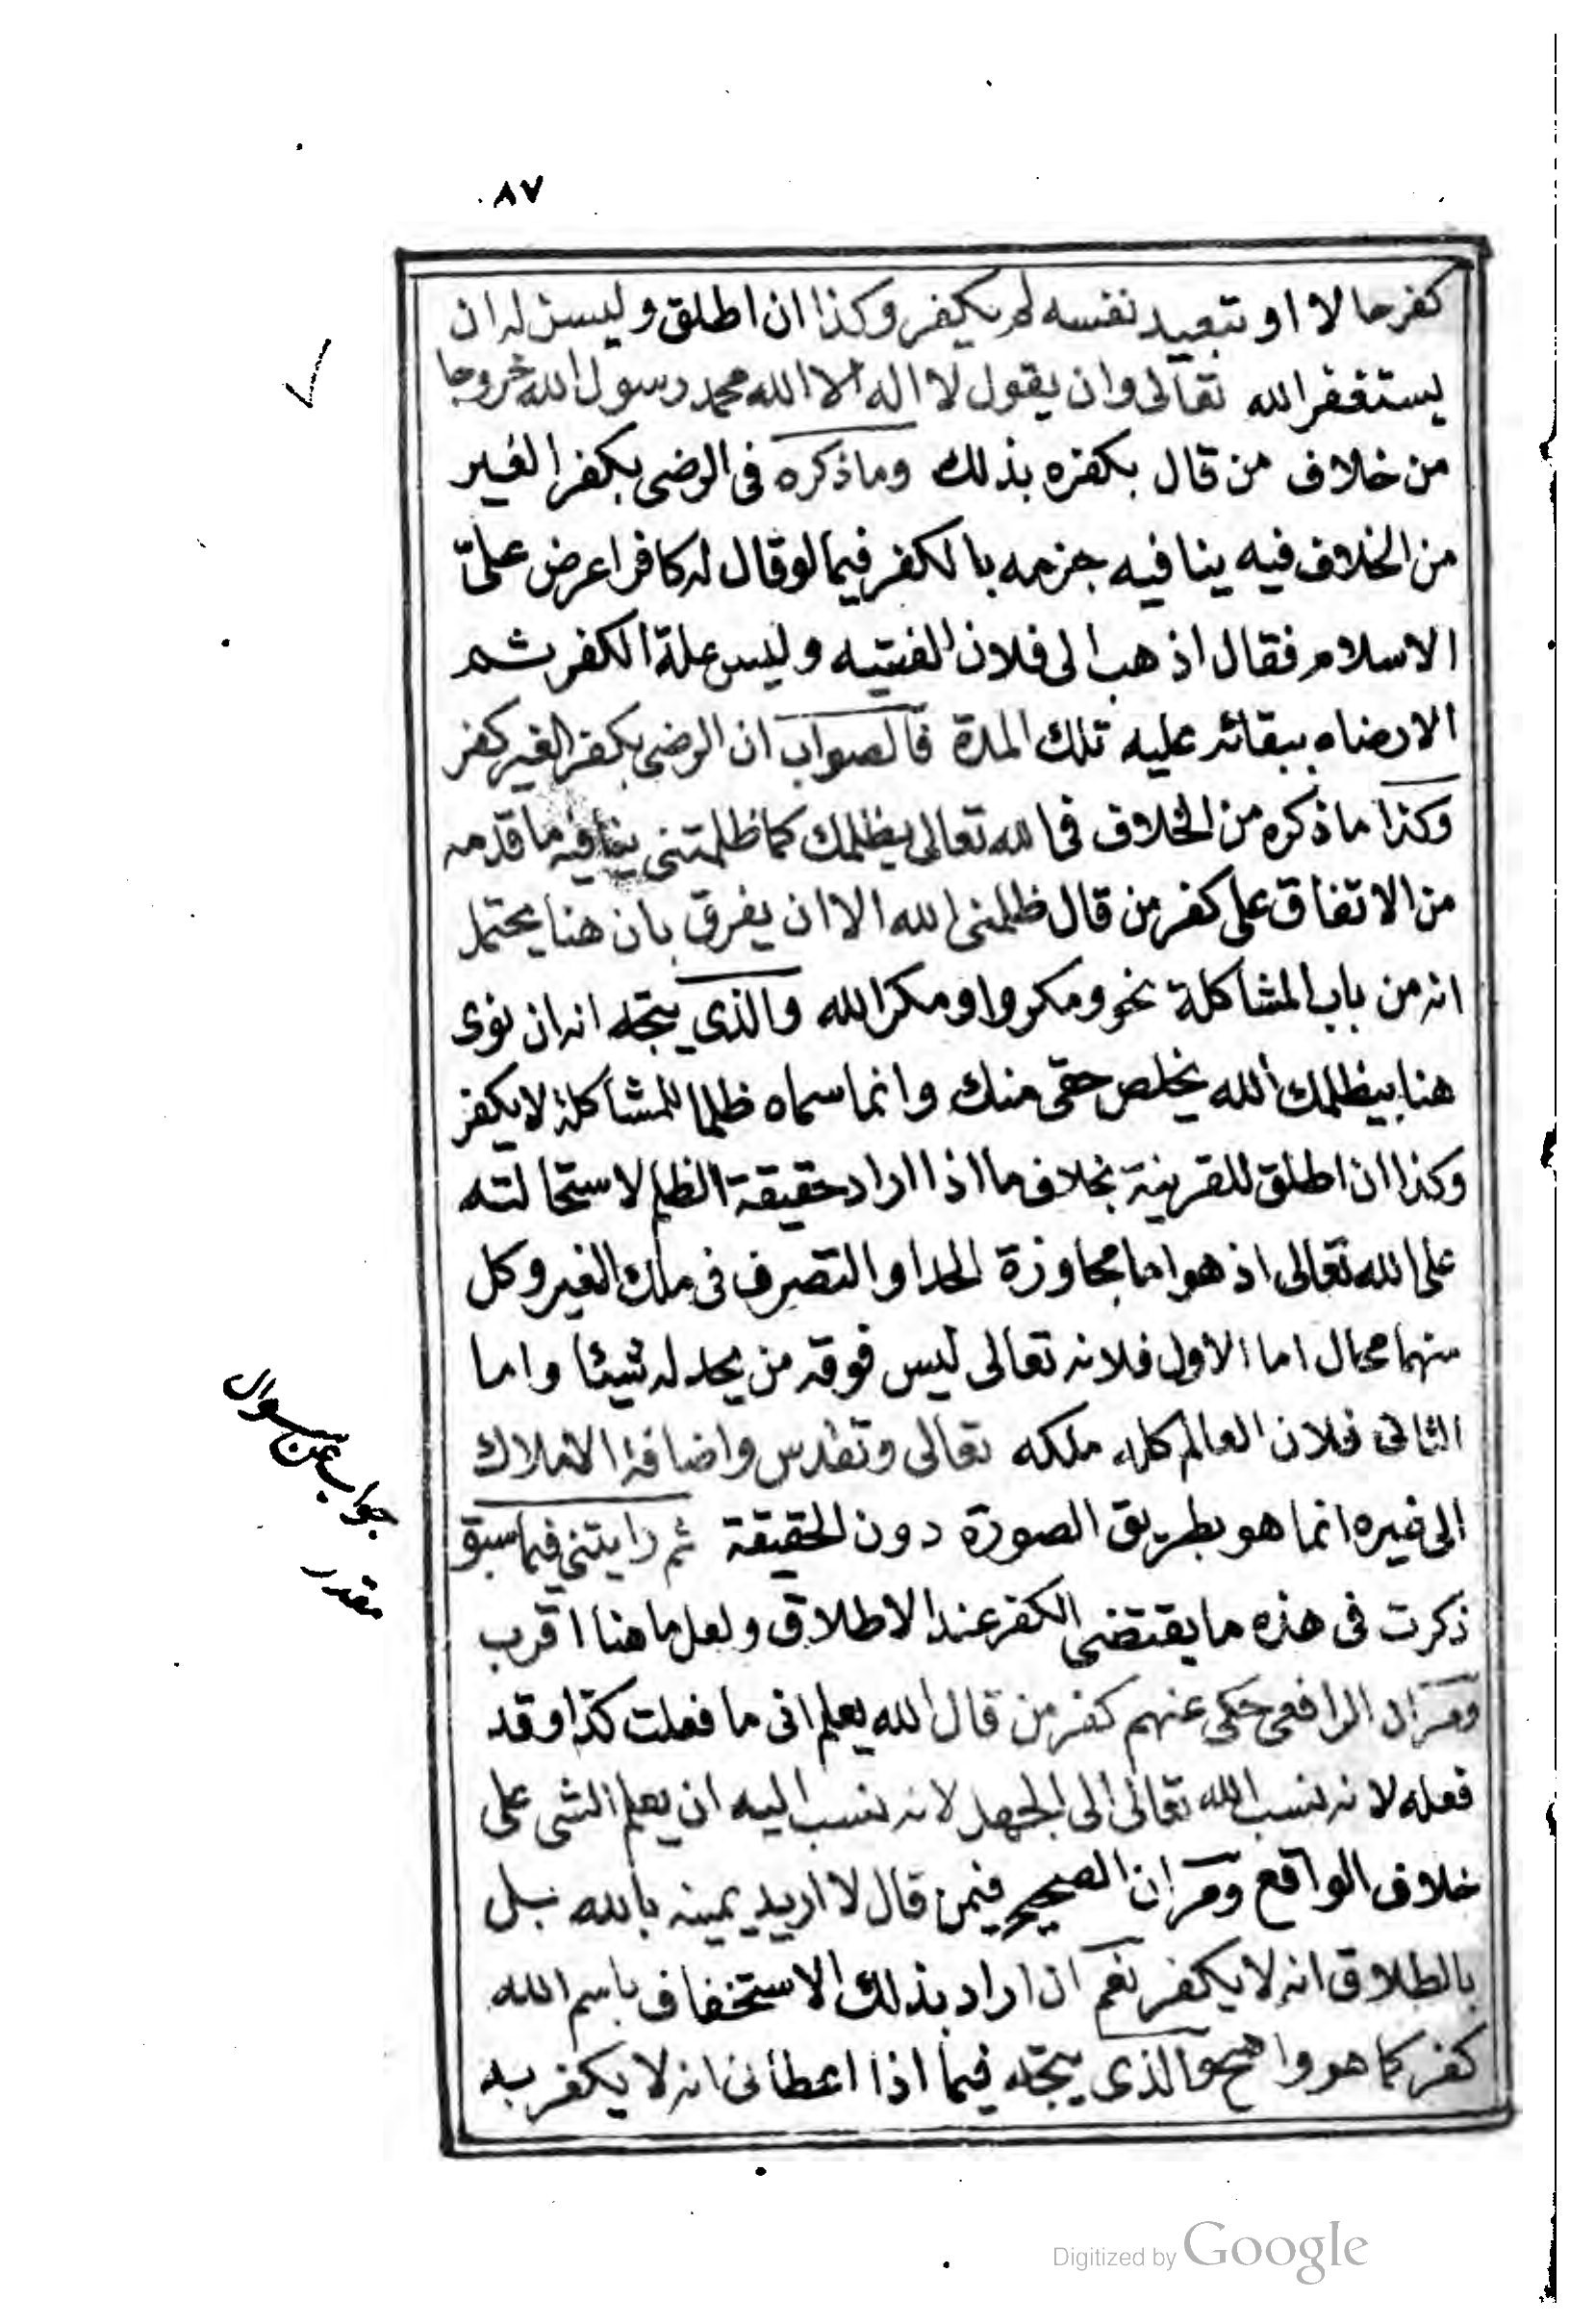 ٨٧
كفر حالا او تبعيد نفسه لم يكفر وكذا ان اطلق وليسن له ان
يستغفر الله تعالى وان يقول لا اله الا الله محمد رسول الله خروجا
من خلاف من قال بكفره بذلك وما ذكره فى الرضى بكفر الغير
من الخلاف فيه ينافيه جزمه بالكفر فيما لو قال له كافر اعرض علىّ
الاسلام فقال اذهب الى فلان الفقيه وليس علة الكفر ثم
الا رضاه ببقائه عليه تلك المدة فالصواب ان الرضى بكفر الغير كفر
وكذا ما ذكره من الخلاف فى الله تعالى يظلمك كما ظلمتنى ينافيه ما قدمه
من الاتفاق على كفر من قال ظلمنى الله الا ان يفرق بان هنا يحتمل
انه من باب المشاكلة نحو ومكروا ومكر الله والذى يتجه انه ان نوى
هنا بيظلمك الله يخلص حقى منك وانما سماه ظلما للمشاكلة لا يكفر
وكذا ان اطلق للقرينة بخلاف ما اذا اراد حقيقة الظلم لاستحالته
على الله تعالى اذ هو اما مجاوزة الحد او التصرف فى ملك الغير وكل
منهما محال اما الاول فلانه تعالى ليس فوقه من يحد له شيئا واما
الثانى فلان العالم كله ملكه تعالى وتقدس واضافة الاملاك
الى غيره انما هو بطريق الصورة دون الحقيقة ثم رايتنى فيما سبق
ذكرت فى هذه ما يقتضى الكفر عند الاطلاق ولعل ما هنا اقرب
ومر ان الرافعى حكى عنهم كفر من قال الله يعلم انى ما فعلت كذا وقد
فعله لانه نسب الله تعالى الى الجهل لانه نسب اليه ان يعلم الشى على
خلاف الواقع ومر ان الصحيح فيمن قال لا اريد يمينه بالله بل
بالطلاق انه لا يكفر نعم ان اراد بذلك الاستخفاف باسم الله
كفر كما هو واضح والذى يتجه فيما اذا اعطانى انه لا يكفر به
جواب عن سوال
مقدر
Digitized by Google